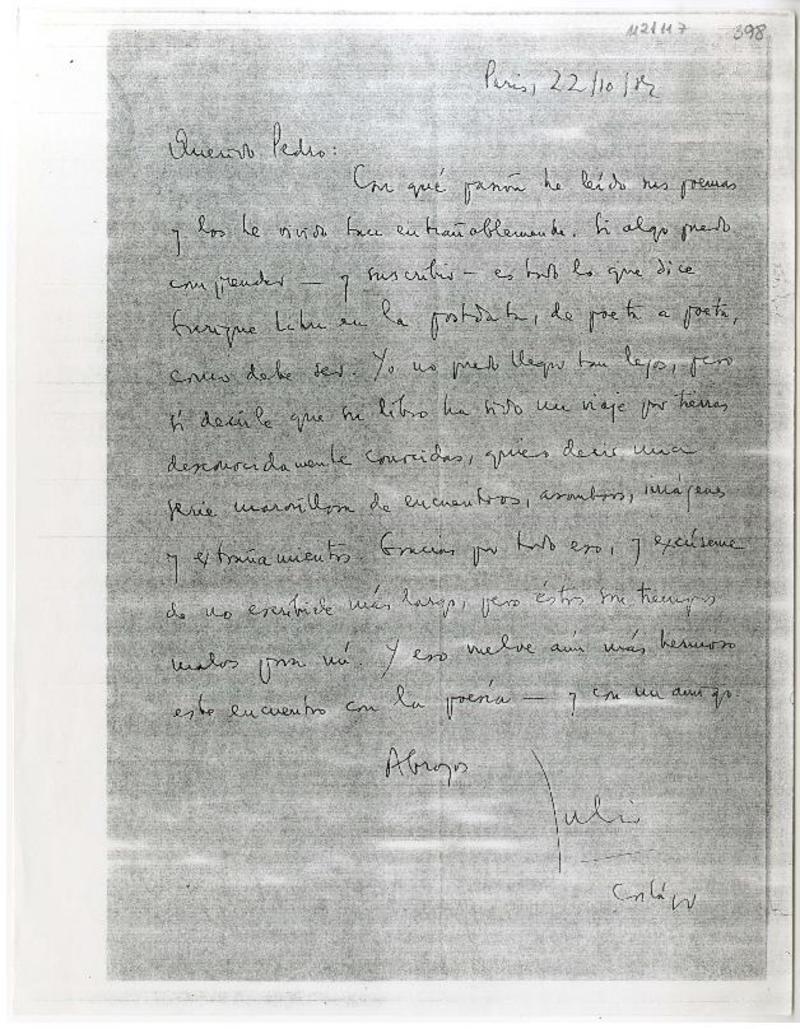 112117 398
Paris, 22/10/82
Querido Pedro:
Con qué pasión he leído sus poemas
y los he vivido entrañablemente. Si algo puedo
comprender — y suscribir — es todo lo que dice
Enrique Lihn en la postdata, de poeta a poeta,
como debe ser. Yo no puedo llegar tan lejos, pero
sí decirle que su libro ha sido un viaje por tierras
desconocidamente conocidas, quiero decir una
serie maravillosa de encuentros, asombros, imágenes
y extrañamientos. Gracias por todo eso, y excúseme
de no escribirle más largo, pero éstos son tiempos
malos para mí. Y eso vuelve aún más hermoso
este encuentro con la poesía — y con un amigo.
Abrazos
Julio
Cortázar